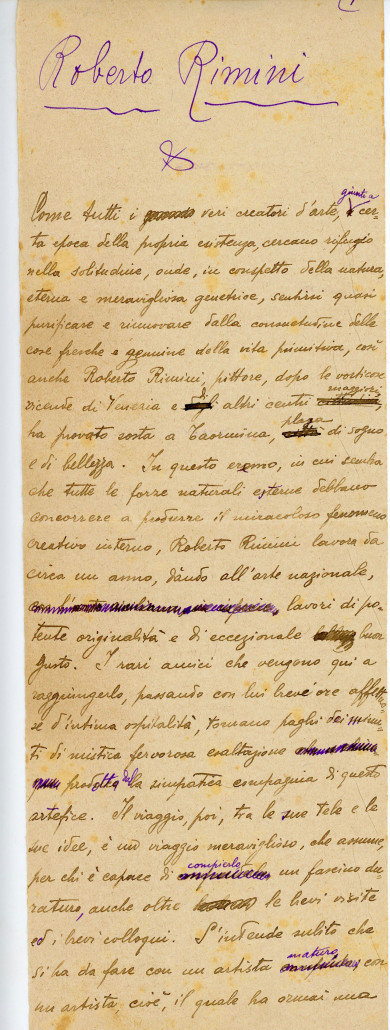 Roberto Rimini
Come tutti i veri creatori d'arte, giunti a cer-
ta epoca della propria esistenza, cercano rifugio
nella solitudine, onde, in cospetto della natura,
eterna e meravigliosa genitrice, sentirsi quasi
purificare e rinnovare dalla consuetudine delle
cose fresche e genuine della vita primitiva, così
anche Roberto Rimini, pittore, dopo le vorticose
vicende di Venezia e di altri centri maggiori,
ha provato sosta a Taormina, plaga di sogno
e di bellezza. In questo eremo, in cui sembra
che tutte le forze naturali esterne debbano
concorrere a produrre il miracoloso fenomeno
creativo interno, Roberto Rimini lavora da
circa un anno, dando all'arte nazionale,
lavori di po-
tente originalità e di eccezionale buon
gusto. I rari amici che vengono qui a
raggiungerlo, passando con lui brevi ore
se d'intima ospitalità, tornano paghi dei minu-
ti di mistica fervorosa esaltazione
prodotta dalla simpatica compagnia di questo
artefice. Il viaggio, poi, tra le sue tele e le
sue idee, è un viaggio meraviglioso, che assume,
per chi è capace di compierlo un fascino du-
raturo, anche oltre le brevi visite
ed i brevi colloqui. S'intende subito che
si ha da fare con un artista maturo, con
un artista, cioè, il quale ha ormai una